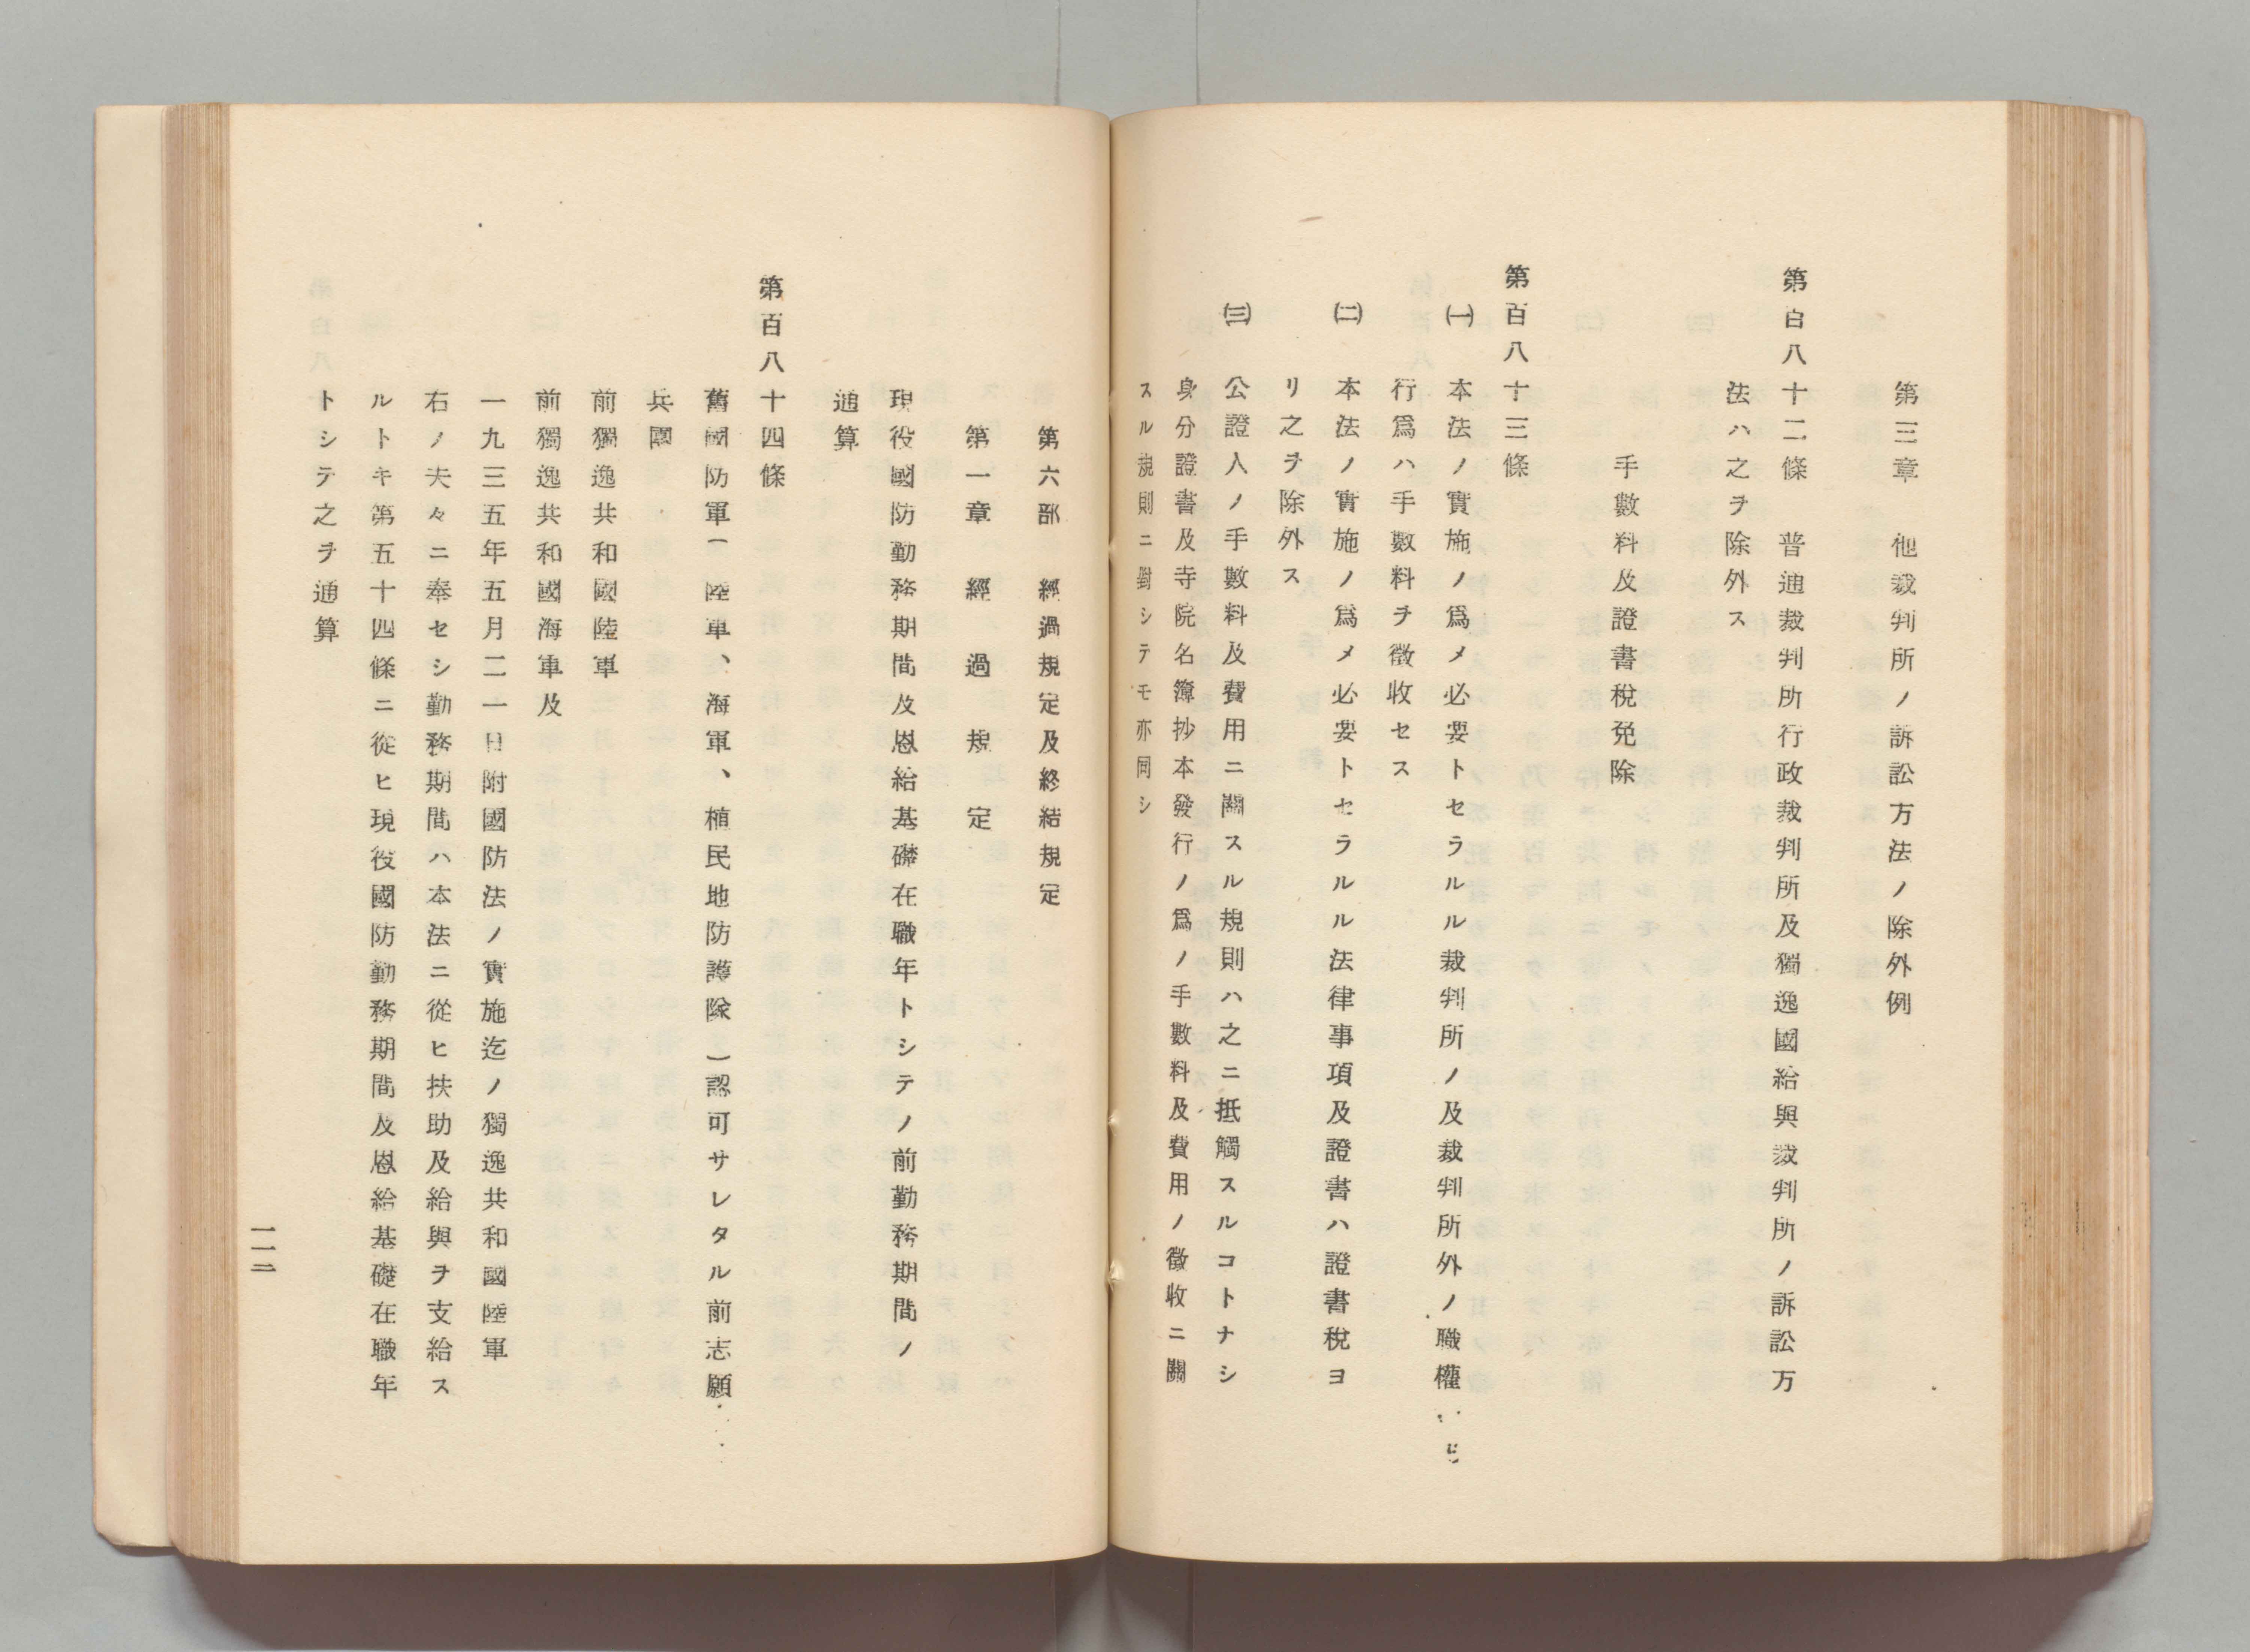 第三章　他裁判所ノ訴訟方法ノ除外例
第百八十二條　普通裁判所行政裁判所及獨逸國給與裁判所ノ訴訟方
法ハ之ヲ除外ス
手數料及證書稅免除
第百八十三條
㈠　本法ノ實施ノ爲メ必要トセラルル裁判所ノ及裁判所外ノ職權
行爲ハ手數料ヲ徵收セス
㈡　本法ノ實施ノ爲メ必要トセラルル法律事項及證書ハ證書稅ヨ
リ之ヲ除外ス
㈢　公證人ノ手數料及費用ニ關スル規則ハ之ニ抵觸スルコトナシ
身分證書及寺院名簿抄本發行ノ爲ノ手數料及費用ノ徵收ニ關
スル規則ニ對シテモ亦同シ
第六部　經過規定及終結規定
第一章　經過規定
現役國防勤務期間及恩給基礎在職年トシテノ前勤務期間ノ
通算
第百八十四條
舊國防軍(陸軍、海軍、植民地防護隊)認可サレタル前志願
兵團
前獨逸共和國陸軍
前獨逸共和國海軍及
一九三五年五月二一日附國防法ノ實施迄ノ獨逸共和國陸軍
右ノ夫々ニ奉セシ勤務期間ハ本法ニ從ヒ扶助及給與ヲ支給ス
ルトキ第五十四條ニ從ヒ現役國防勤務期間及恩給基礎在職年
トシテ之ヲ通算